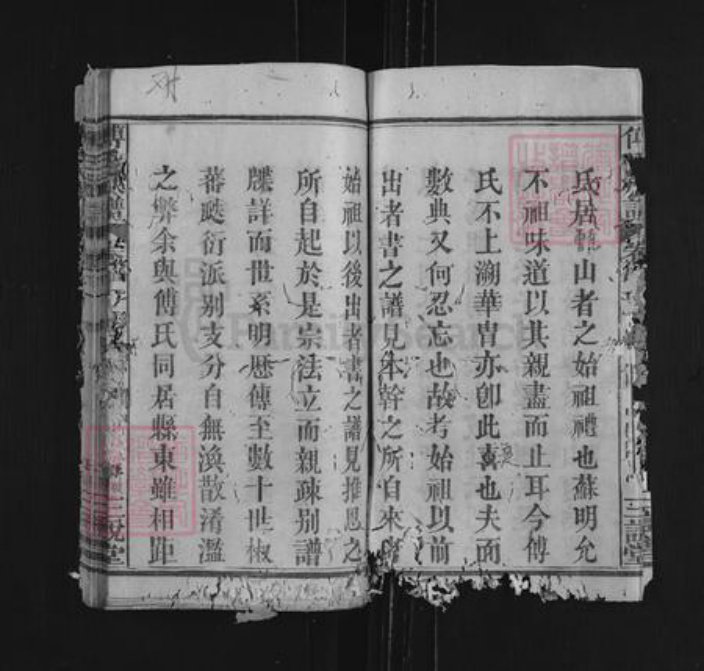 氏居韓山者之始祖禮也蘇明允
不祖味道以其親盡而止耳今傅
氏不上溯華胄亦卽此意也夫面
數典又何忍忘也故考始祖以前
出者書之譜見本幹之所自來
始祖以後出者書之譜見推恩之
所自起於是宗法立而親疎别譜
牒詳而世系明歷傳至數十世椒
蕃瓞衍派别支分自無渙散淆濫
之弊余與傅氏同居縣東雖相距
三說堂
FamilySearch